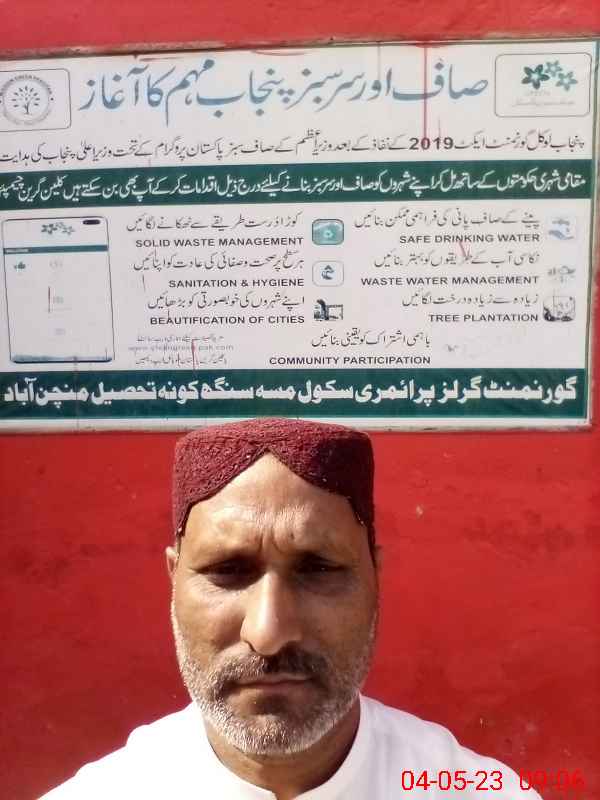 صاف اور سرسبز پنجاب مہم کا آغاز
پنجاب لوکل گورنمنٹ ایکٹ 2019 کے نفاذ کے بعد وزیراعظم کے صاف سبز پاکستان پروگرام کے تحت وزیراعلیٰ پنجاب کی ہدایت
مقامی شہری حکومتوں کے ساتھ مل کر اپنے شہروں کو صاف اور سرسبز بنانے کیلئے درج ذیل اقدامات کر کے آپ بھی بن سکتے ہیں کلین گرین چیمپئن
پینے کے صاف پانی کی فراہمی ممکن بنائیں
SAFE DRINKING WATER
کوڑا درست طریقے سے ٹھکانے لگائیں
SOLID WASTE MANAGEMENT
نکاسی آب کے طریقوں کو بہتر بنائیں
WASTE WATER MANAGEMENT
ہر سطح پر صحت و صفائی کی عادت کو اپنائیں
SANITATION & HYGIENE
زیادہ سے زیادہ درخت لگائیں
TREE PLANTATION
اپنے شہروں کی خوبصورتی کو بڑھائیں
BEAUTIFICATION OF CITIES
باہمی اشتراک کو یقینی بنائیں
COMMUNITY PARTICIPATION
گورنمنٹ گرلز پرائمری سکول مسہ سنگھ کونہ تحصیل منچن آباد
04-05-23 09:06